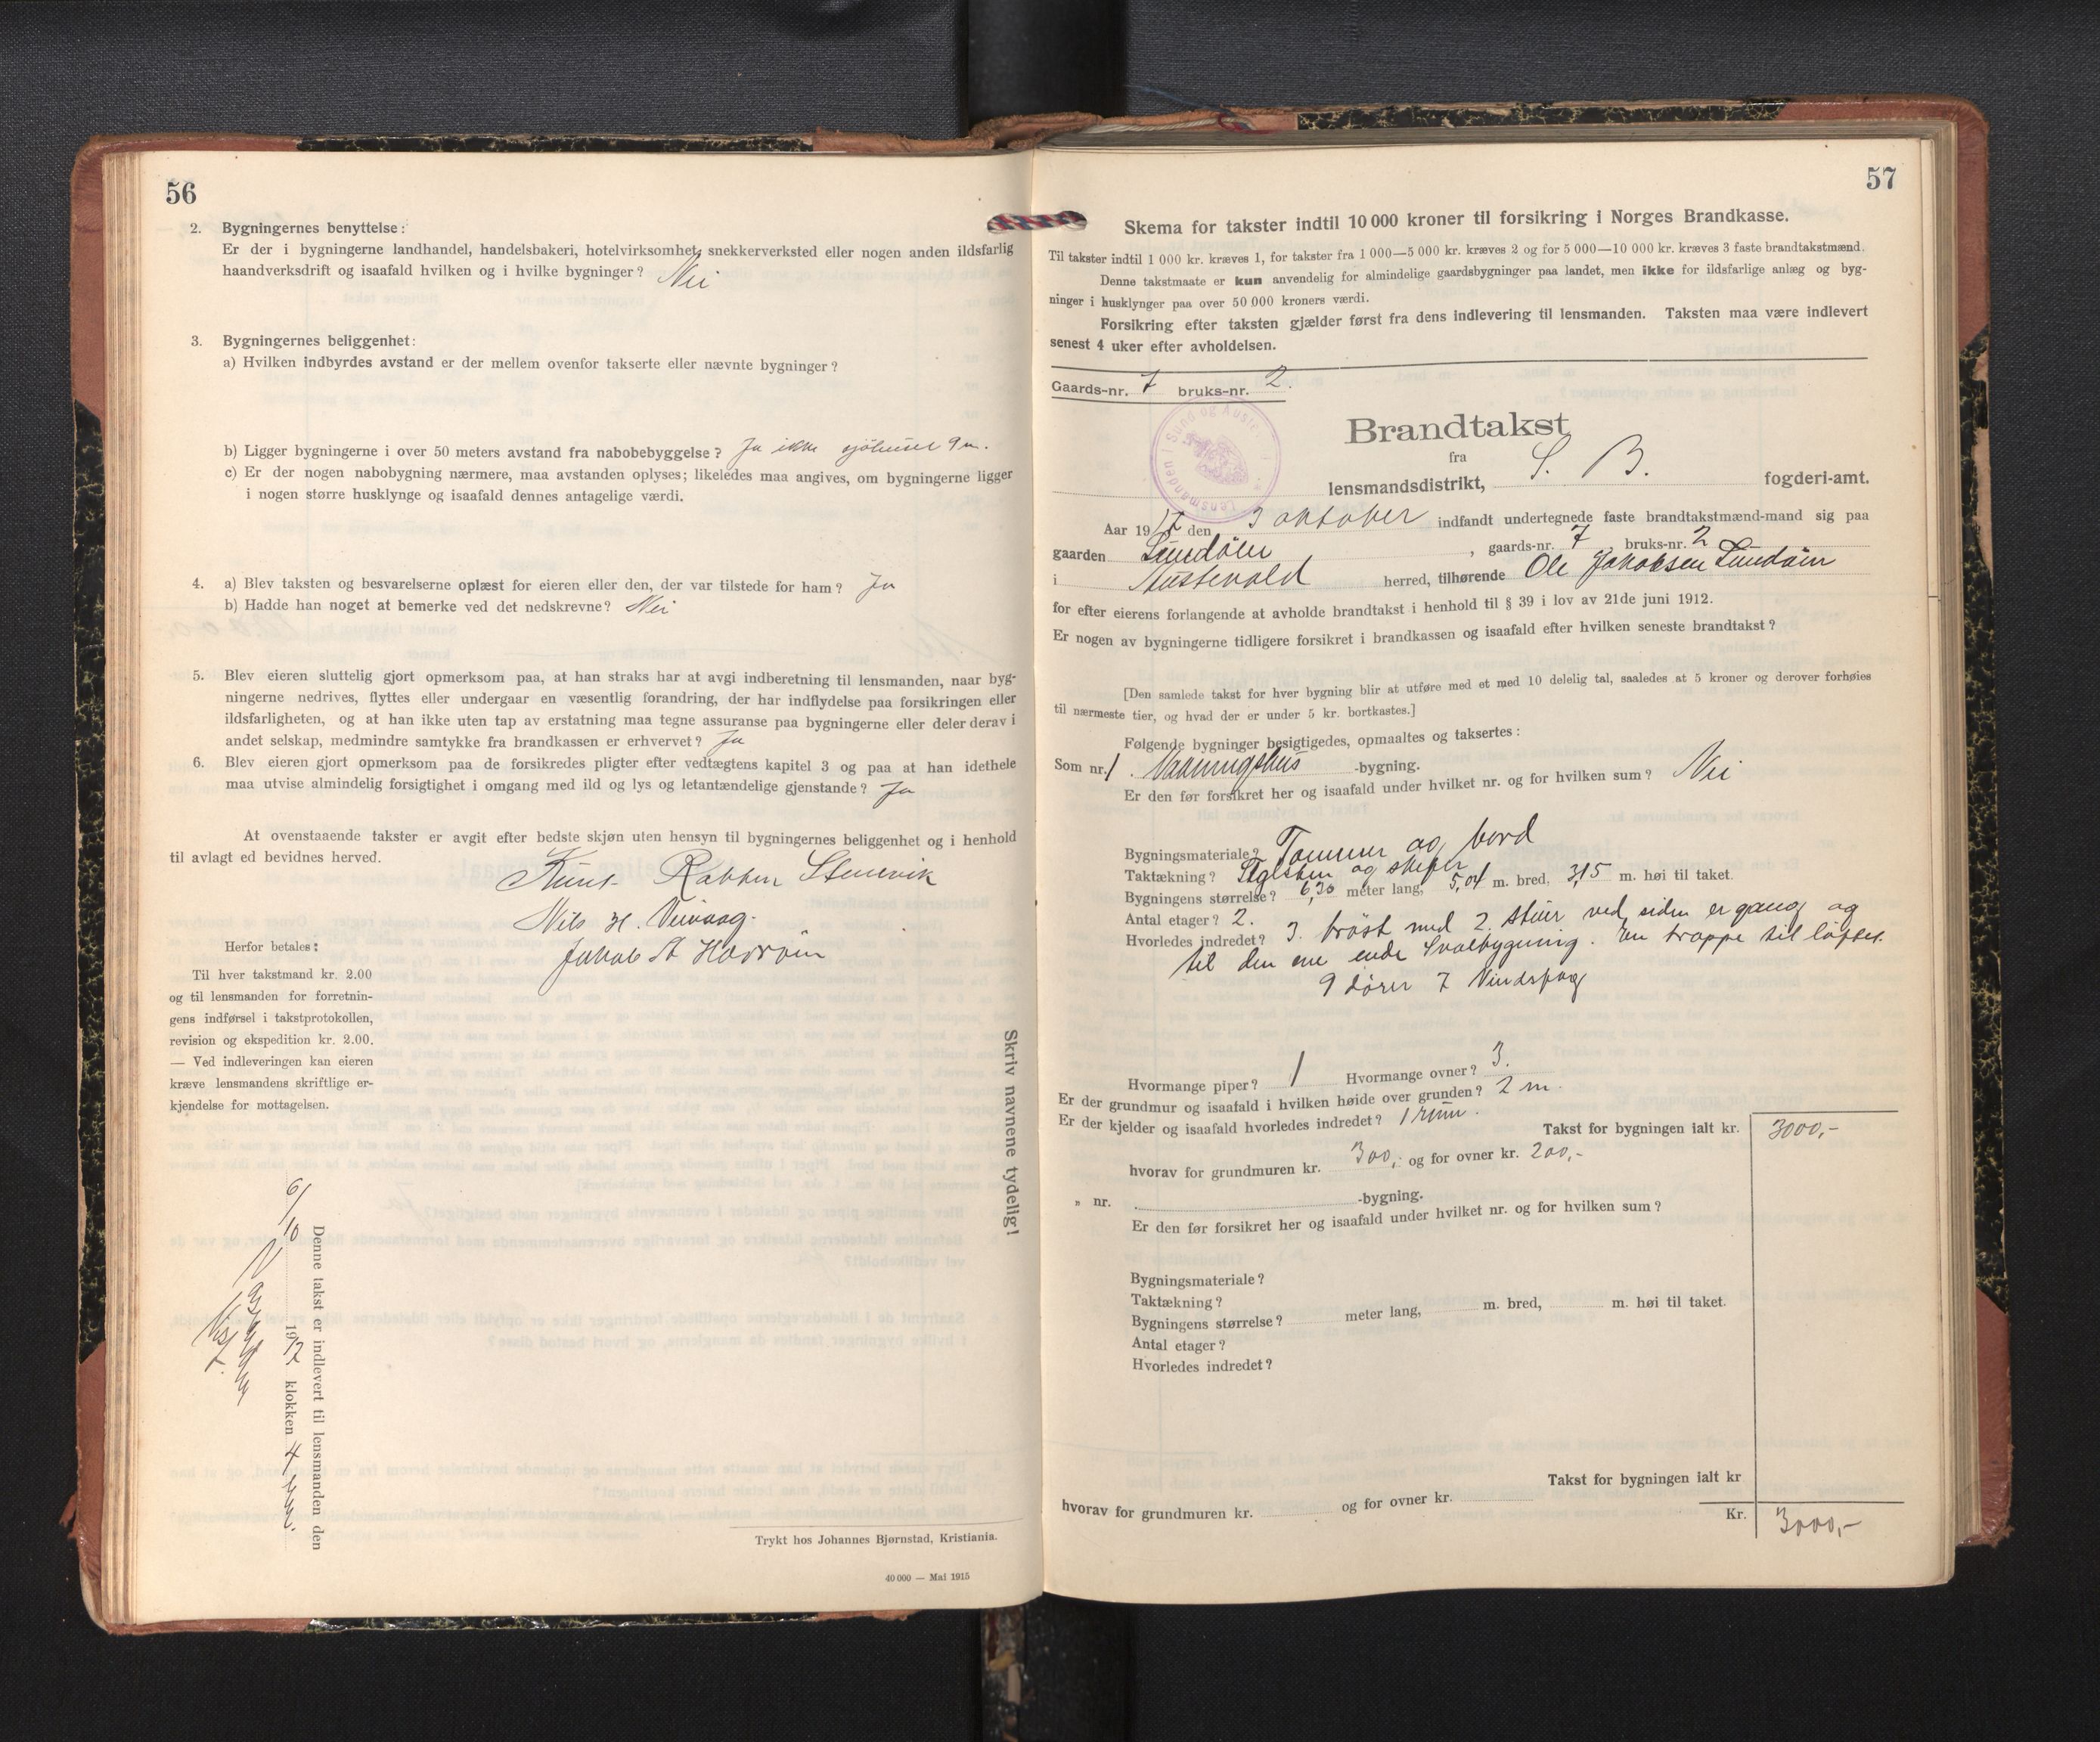 56
2. Bygningernes benyttelse:
Er der i bygningerne landhandel, handelsbakeri, hotelvirksomhet, snekkerverksted eller nogen anden ildsfarlig
haandverksdrift og isaafald hvilken og i hvilke bygninger? Nei
3. Bygningernes beliggenhet:
a) Hvilken indbyrdes avstand er der mellem ovenfor takserte eller nævnte bygninger?
b) Ligger bygningerne i over 50 meters avstand fra nabobebyggelse? Ja ikke sjöhuset 9 m.
c) Er der nogen nabobygning nærmere, maa avstanden oplyses; likeledes maa angives, om bygningerne ligger
i nogen større husklynge og isaafald dennes antagelige værdi.
4. a) Blev taksten og besvarelserne oplæst for eieren eller den, der var tilstede for ham? Ja
b) Hadde han noget at bemerke ved det nedskrevne? Nei
5. Blev eieren sluttelig gjort opmerksom paa, at han straks har at avgi indberetning til lensmanden, naar byg-
ningerne nedrives, flyttes eller undergaar en væsentlig forandring, der har indflydelse paa forsikringen eller
ildsfarligheten, og at han ikke uten tap av erstatning maa tegne assuranse paa bygningerne eller deler derav i
andet selskap, medmindre samtykke fra brandkassen er erhvervet? Ja
6. Blev eieren gjort opmerksom paa de forsikredes pligter efter vedtægtens kapitel 3 og paa at han idethele
maa utvise almindelig forsigtighet i omgang med ild og lys og letantændelige gjenstande? Ja
At ovenstaaende takster er avgit efter bedste skjøn uten hensyn til bygningernes beliggenhet og i henhold
til avlagt ed bevidnes herved.
Knut Rabben Stenevik
Nils H. Veivaag.
Jakob A Horröin
Herfor betales:
Til hver takstmand kr. 2.00
og til lensmanden for forretnin-
gens indførsel i takstprotokollen,
revision og ekspedition kr. 2.00.
— Ved indleveringen kan eieren
kræve lensmandens skriftlige er-
kjendelse for mottagelsen.
Skriv navnene tydelig!
Denne takst er indlevert til lensmanden den
6/10 1917 klokken 4
Trykt hos Johannes Bjørnstad, Kristiania.
40 000 — Mai 1915
57
Skema for takster indtil 10 000 kroner til forsikring i Norges Brandkasse.
Til takster indtil 1 000 kr. kræves 1, for takster fra 1 000—5 000 kr. kræves 2 og for 5 000—10 000 kr. kræves 3 faste brandtakstmænd.
Denne takstmaate er kun anvendelig for almindelige gaardsbygninger paa landet, men ikke for ildsfarlige anlæg og byg-
ninger i husklynger paa over 50 000 kroners værdi.
Forsikring efter taksten gjælder først fra dens indlevering til lensmanden. Taksten maa være indlevert
senest 4 uker efter avholdelsen.
Gaards-nr. 7 bruks-nr. 2.
Lensmanden i Sund og Austevold
Brandtakst
fra
lensmandsdistrikt, S. B. fogderi-amt.
Aar 1917 den 3 oktober indfandt undertegnede faste brandtakstmænd-mand sig paa
gaarden Lundöen, gaards-nr. 7, bruks-nr. 2
i Austevold herred, tilhørende Ole Jakobsen Lundöin
for efter eierens forlangende at avholde brandtakst i henhold til § 39 i lov av 21de juni 1912.
Er nogen av bygningerne tidligere forsikret i brandkassen og isaafald efter hvilken seneste brandtakst?
[Den samlede takst for hver bygning blir at utføre med et med 10 delelig tal, saaledes at 5 kroner og derover forhøies
til nærmeste tier, og hvad der er under 5 kr. bortkastes.]
Følgende bygninger besigtigedes, opmaaltes og taksertes:
Som nr. 1. Vaaningshus -bygning.
Er den før forsikret her og isaafald under hvilket nr. og for hvilken sum? Nei
Bygningsmateriale? Tømmer og bord
Taktækning? Taglsten og skifer
Bygningens størrelse? 6,30 meter lang, 5,04 m. bred, 3,15 m. høi til taket.
Antal etager? 2.
Hvorledes indredet? 3. bröst med 2. stuer ved siden er gang og
til den ene ende Svalbygning. En trappe til löftet.
9 dörer 7 Vindsfag
Hvormange piper? 1 Hvormange ovner? 3.
Er der grundmur og isaafald i hvilken høide over grunden? 2 m.
Er der kjelder og isaafald hvorledes indredet? 1 rum.
Takst for bygningen ialt kr. 3000,-
hvorav for grundmuren kr. 300,- og for ovner kr. 200,-
„ nr. -bygning.
Er den før forsikret her og isaafald under hvilket nr. og for hvilken sum?
Bygningsmateriale?
Taktækning?
Bygningens størrelse? meter lang, m. bred, m. høi til taket.
Antal etager?
Hvorledes indredet?
Takst for bygningen ialt kr
hvorav for grundmuren kr. og for ovner kr.
Kr. 3000,-